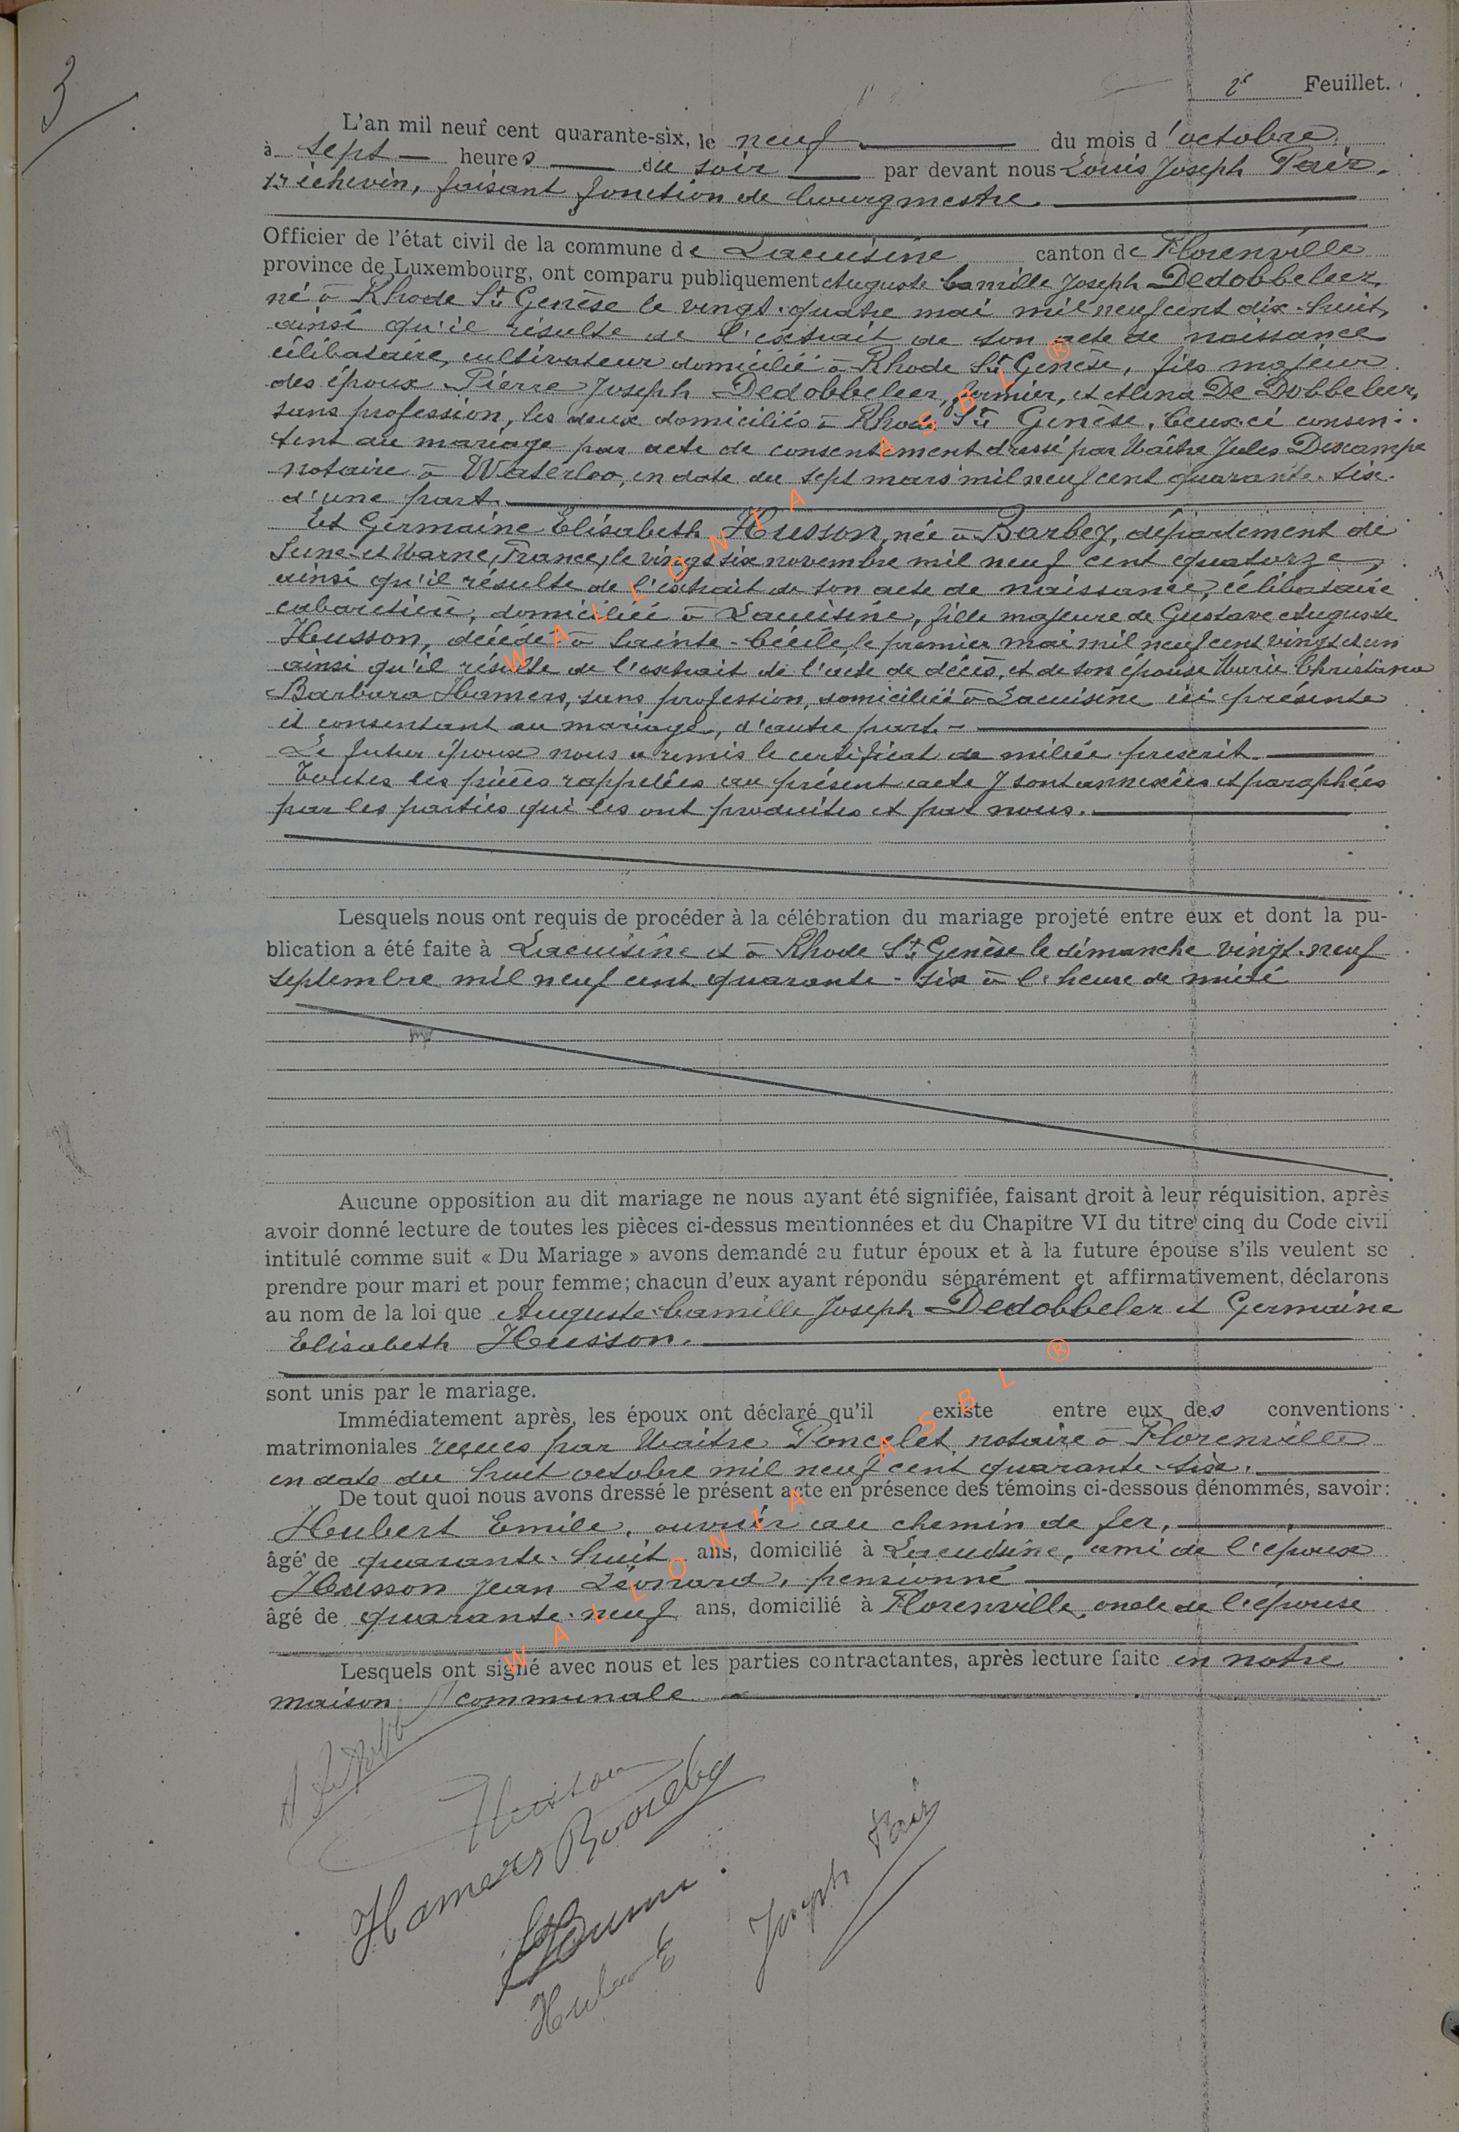 3
2e Feuillet.
L'an mil neuf cent quarante-six, le neuf du mois d'octobre
à sept heures du soir par devant nous Louis Joseph Pair,
1r échevin, faisant fonction de bourgmestre.
Officier de l'état civil de la commune de Lacuisine canton de Florenville
province de Luxembourg, ont comparu publiquement Auguste Camille Joseph Dedobbeleer,
né à Rhode Ste Genèse le vingt-quatre mai mil neuf cent dix-huit,
ainsi qu'il résulte de l'extrait de son acte de naissance
célibataire, cultivateur domicilié à Rhode Ste Genèse, fils majeur
des époux Pierre Joseph Dedobbeleer, fermier, et Alina De Dobbeleer,
sans profession, les deux domiciliés à Rhode Ste Genèse. Ceux-ci consen-
tent au mariage par acte de consentement dressé par Maître Jules Descampe
notaire à Waterloo, en date du sept mars mil neuf cent quarante-six.
d'une part.
Et Germaine Elisabeth Husson, née à Barbey, département de
Seine-et-Marne, France, le vingt six novembre mil neuf cent quatorze,
ainsi qu'il résulte de l'extrait de son acte de naissance, célibataire
cabaretière, domiciliée à Lacuisine, fille majeure de Gustave Auguste
Husson, décédé à Sainte-Cécile, le premier mai mil neuf cent vingt et un
ainsi qu'il résulte de l'extrait de l'acte de décès, et de son épouse Marie Christiana
Barbara Hamers, sans profession, domiciliée à Lacuisine ici présente
et consentant au mariage, d'autre part.
Le futur époux nous a remis le certificat de milice prescrit.
Toutes les pièces rappelées au présent acte y sont annexées et paraphées
par les parties qui les ont produites et par nous.
Lesquels nous ont requis de procéder à la célébration du mariage projeté entre eux et dont la pu-
blication a été faite à Lacuisine et à Rhode Ste Genèse le dimanche vingt-neuf
septembre mil neuf cent quarante-six à l'heure de midi
Aucune opposition au dit mariage ne nous ayant été signifiée, faisant droit à leur réquisition, après
avoir donné lecture de toutes les pièces ci-dessus mentionnées et du Chapitre VI du titre cinq du Code civil
intitulé comme suit « Du Mariage » avons demandé au futur époux et à la future épouse s'ils veulent se
prendre pour mari et pour femme; chacun d'eux ayant répondu séparément et affirmativement, déclarons
au nom de la loi que Auguste Camille Joseph Dedobbeler et Germaine
Elisabeth Husson.
sont unis par le mariage.
Immédiatement après, les époux ont déclaré qu'il existe entre eux des conventions
matrimoniales reçues par Maître Poncelet notaire à Florenville
en date du huit octobre mil neuf cent quarante-six.
De tout quoi nous avons dressé le présent acte en présence des témoins ci-dessous dénommés, savoir:
Hubert Emile, ouvrier au chemin de fer,
âgé de quarante-huit ans, domicilié à Lacuisine, ami de l'époux
Husson Jean Léonard, pensionné
âgé de quarante-neuf ans, domicilié à Florenville, oncle de l'épouse
Lesquels ont signé avec nous et les parties contractantes, après lecture faite en notre
maison communale
Husson
Hamers
Joseph Pair
Hubert E
WALLONIA ASBL ®
WALLONIA ASBL ®